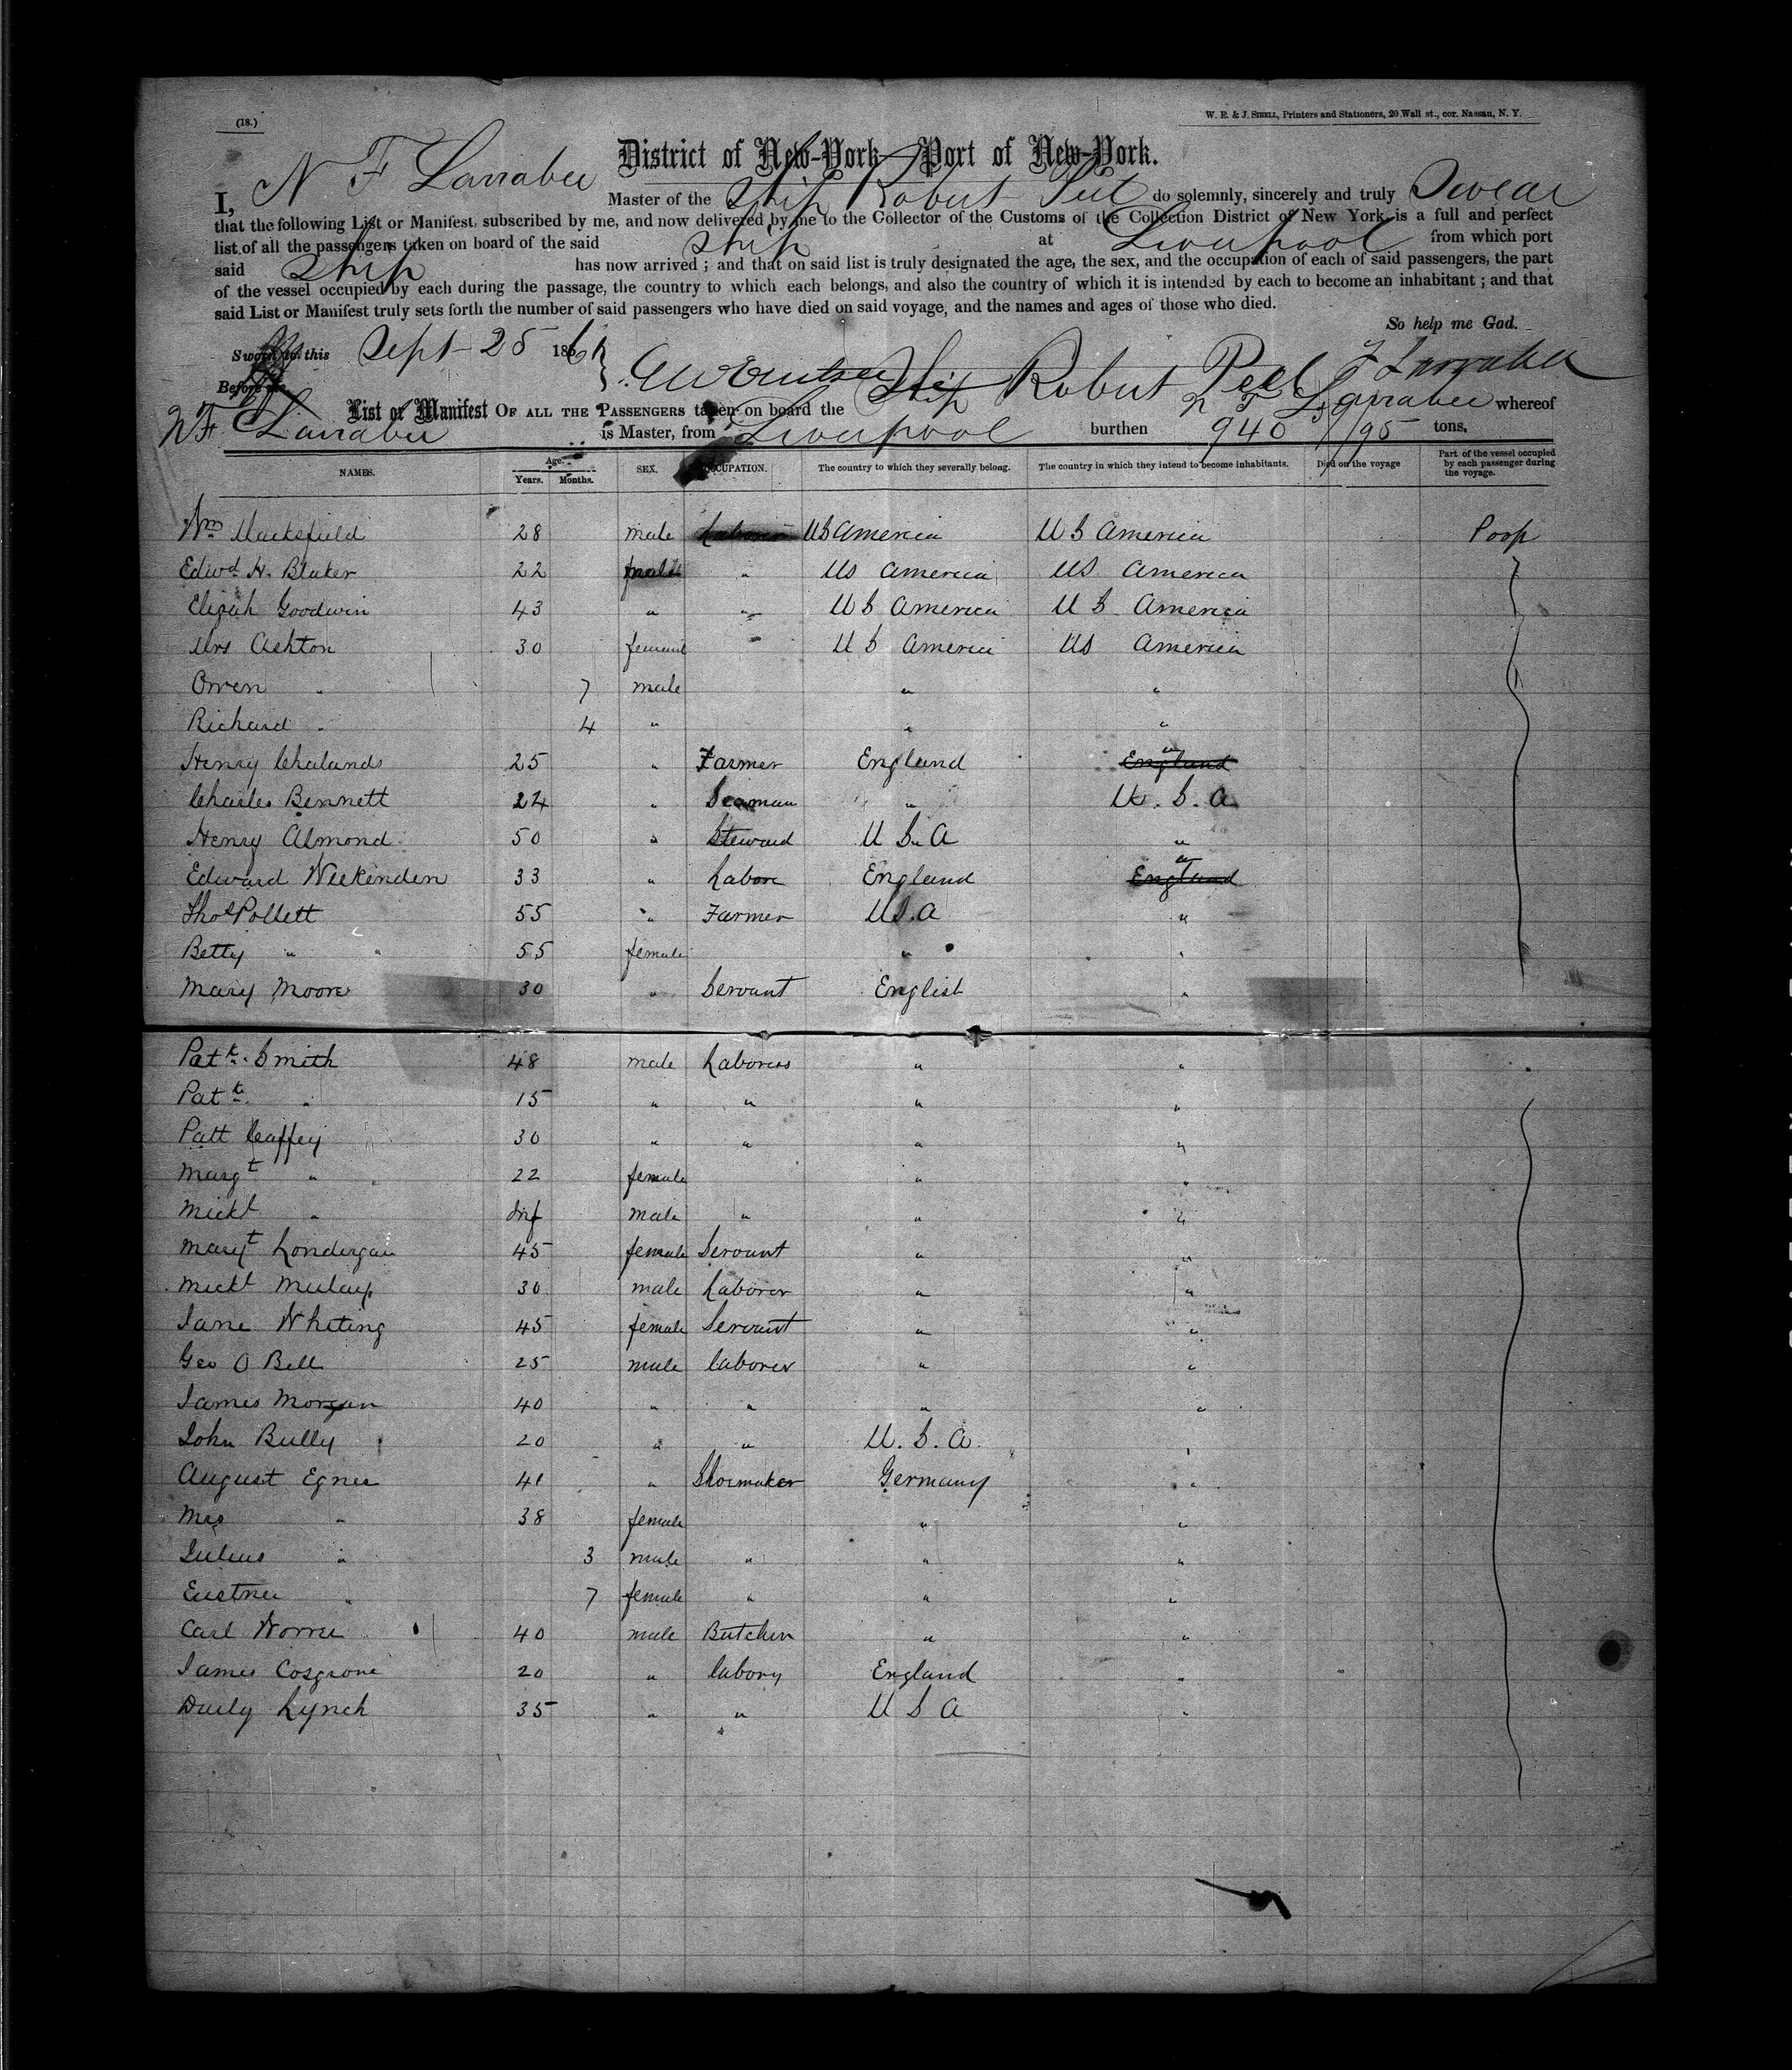 (18.)
W. E. & J. SIBELL, Printers and Stationers, 20 Wall st., cor. Nassau, N. Y.
District of New-York Port of New-York.
I, N F Larrabee Master of the Ship Robert Peel do solemnly, sincerely and truly Swear
that the following List or Manifest, subscribed by me, and now delivered by me to the Collector of the Customs of the Collection District of New York, is a full and perfect
list of all the passengers taken on board of the said Ship at Liverpool from which port
said Ship has now arrived ; and that on said list is truly designated the age, the sex, and the occupation of each of said passengers, the part
of the vessel occupied by each during the passage, the country to which each belongs, and also the country of which it is intended by each to become an inhabitant ; and that
said List or Manifest truly sets forth the number of said passengers who have died on said voyage, and the names and ages of those who died.
So help me God.
Sworn to this Sept 25 186
Before me N F Larrabee
List or Manifest OF ALL THE PASSENGERS taken on board the Ship Robert Peel N F Larrabee whereof
N F Larrabee is Master, from Liverpool burthen 940 /95 tons.
NAMES. Age. Years. Months. SEX. OCCUPATION. The country to which they severally belong. The country in which they intend to become inhabitants. Died on the voyage Part of the vessel occupied by each passenger during the voyage.
Wm 28 male Laborer US America US America Poop
Edwd H. Blaker 22 male " US America US America
Elijah Goodwin 43 " " US America US America
Mrs Ashton 30 female US America US America
Owen " 7 male " "
Richard " 4 " " "
Henry Chalands 25 " Farmer England England "
Charles Bennett 24 " Seaman " U. S. A
Henry Almond 50 " Steward U S A "
Edward Weekenden 33 " Labore England England "
Thos Pollett 55 " Farmer US. A "
Betty " " 55 female " "
Mary Moore 30 " Servant English "
Patk. Smith 48 male Laborers " "
Patk. " 15 " " " "
Patt Caffey 30 " " " "
Margt " 22 female " "
Michl " Inf male " " "
Margt Londergan 45 female Servant " "
Michl 30 male Laborer " "
Jane Whiting 45 female Servant " "
Geo O Bell 25 male laborer " "
James Morgan 40 " " " "
John Bully 20 " " U. S. A. "
August Egner 41 " Shoemaker Germany "
Mrs " 38 female " "
Julius " 3 male " " "
" 7 female " " "
Carl 40 male Butcher " "
James Cosgrove 20 " labory England "
Daily Lynch 35 " " U S A "